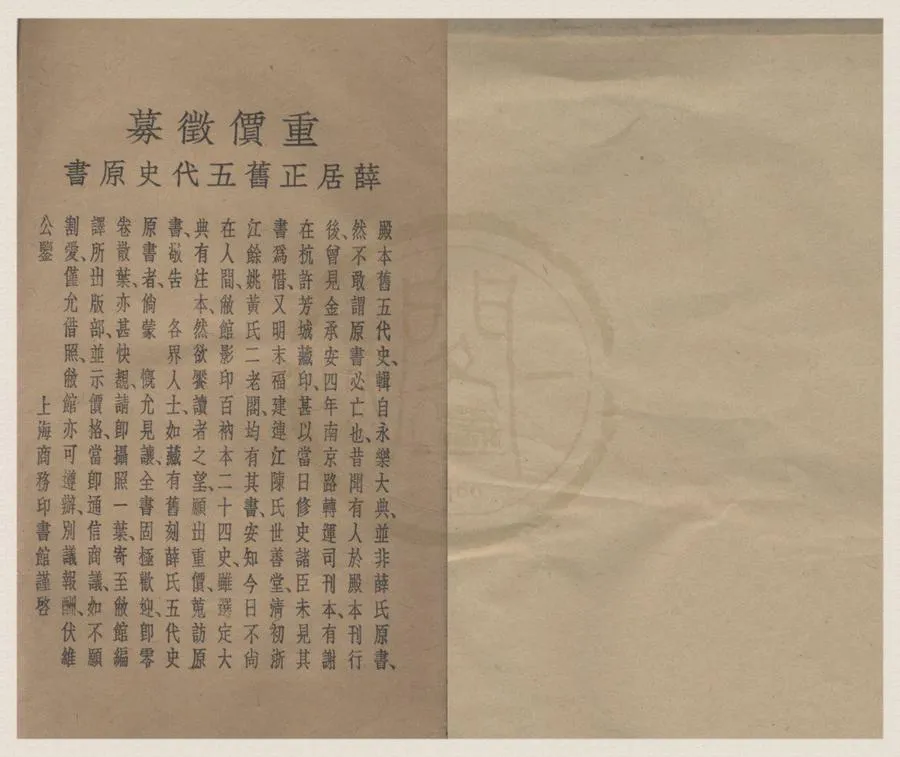 重價徵募
薛居正舊五代史原書
殿本舊五代史、輯自永樂大典、並非薛氏原書、
然不敢謂原書必亡也、昔聞有人於殿本刊行
後、曾見金承安四年南京路轉運司刊本、有謝
在杭許芳城藏印、甚以當日修史諸臣未見其
書爲惜、又明末福建連江陳氏世善堂、清初浙
江餘姚黃氏二老閣、均有其書、安知今日不尚
在人間、敝館影印百衲本二十四史、雖選定大
典有注本、然欲饜讀者之望、願出重價、蒐訪原
書、敬告 各界人士、如藏有舊刻薛氏五代史
原書者、倘蒙 慨允見讓、全書固極歡迎、卽零
卷散葉、亦甚快覩、請卽攝照一葉、寄至敝館編
譯所出版部、並示價格、當卽通信商議、如不願
割愛、僅允借照、敝館亦可遵辦、別議報酬、伏維
公鑒 上海商務印書館謹啓